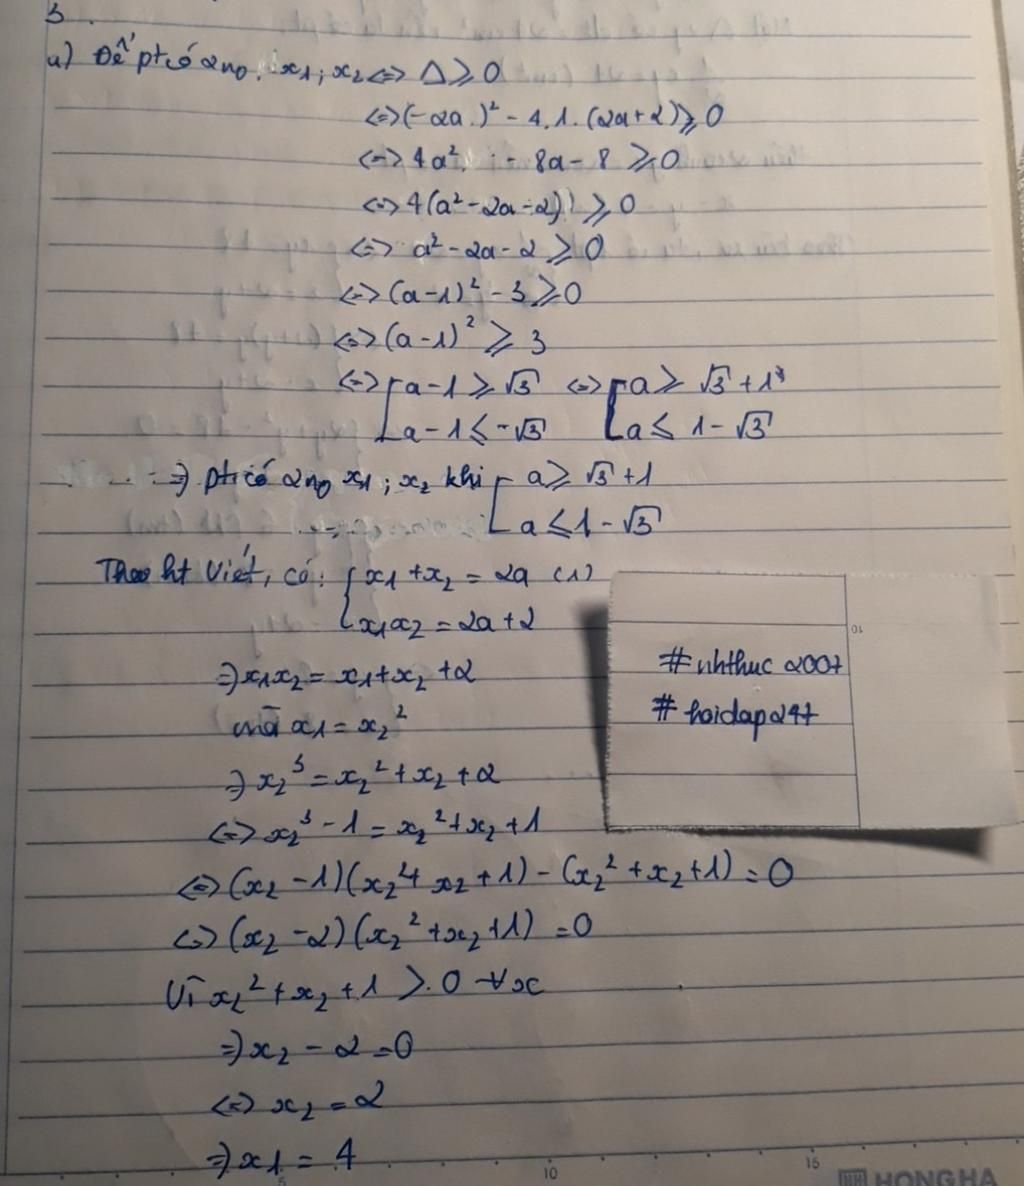 3.
a) Để pt có 2 n₀ x₁; x₂ <=> Δ ⩾ 0
<=> (-2a)² - 4.1.(2a+2) ⩾ 0
<=> 4a² - 8a - 8 ⩾ 0
<=> 4(a² - 2a - 2) ⩾ 0
<=> a² - 2a - 2 ⩾ 0
<=> (a-1)² - 3 ⩾ 0
<=> (a-1)² ⩾ 3
<=> [ a - 1 ⩾ √3 <=> [ a ⩾ √3 + 1
a - 1 ⩽ -√3 a ⩽ 1 - √3
=> pt có 2 n₀ x₁; x₂ khi [ a ⩾ √3 + 1
a ⩽ 1 - √3
Theo ht Viét, có: { x₁ + x₂ = 2a (1)
x₁x₂ = 2a + 2
=> x₁x₂ = x₁ + x₂ + 2
mà x₁ = x₂²
=> x₂³ = x₂² + x₂ + 2
<=> x₂³ - 1 = x₂² + x₂ + 1
<=> (x₂ - 1)(x₂² + x₂ + 1) - (x₂² + x₂ + 1) = 0
<=> (x₂ - 2)(x₂² + x₂ + 1) = 0
Vì x₂² + x₂ + 1 > 0 ∀x
=> x₂ - 2 = 0
<=> x₂ = 2
=> x₁ = 4
#nhthuc2007
#hoidap247
10
5 10 15
HH HONG HA